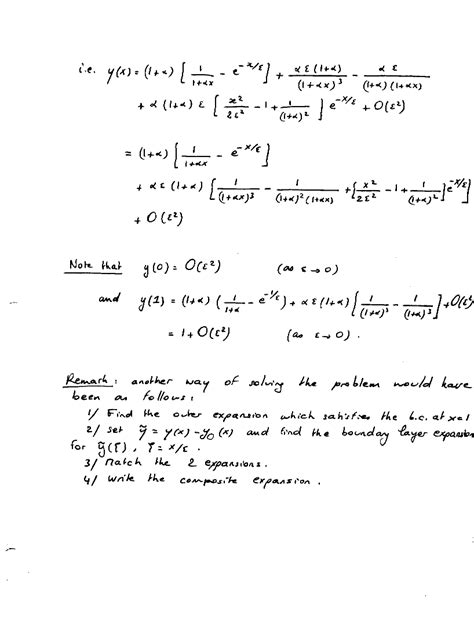 i.e. y(x) = (1+α) [ 1/(1+αx) - e^{-x/ε} ] + αε(1+α)/(1+αx)^3 - αε/((1+α)(1+αx))
+ α(1+α) ε [ x^2/(2ε^2) - 1 + 1/(1+α)^2 ] e^{-x/ε} + O(ε^2)
= (1+α) [ 1/(1+αx) - e^{-x/ε} ]
+ αε(1+α) [ 1/(1+αx)^3 - 1/((1+α)^2(1+αx)) + [ x^2/(2ε^2) - 1 + 1/(1+α)^2 ] e^{-x/ε} ]
+ O(ε^2)
Note that y(0) = O(ε^2) (as ε→0)
and y(1) = (1+α) ( 1/(1+α) - e^{-1/ε} ) + αε(1+α) [ 1/(1+α)^3 - 1/(1+α)^3 ] + O(ε^2)
= 1 + O(ε^2) (as ε→0).
Remark: another way of solving the problem would have
been as follows:
1/ Find the outer expansion which satisfies the b.c. at x=1
2/ set ỹ = y(x) - y_0(x) and find the boundary layer expansion
for ỹ(x̃), x̃ = x/ε.
3/ Match the 2 expansions.
4/ Write the composite expansion.